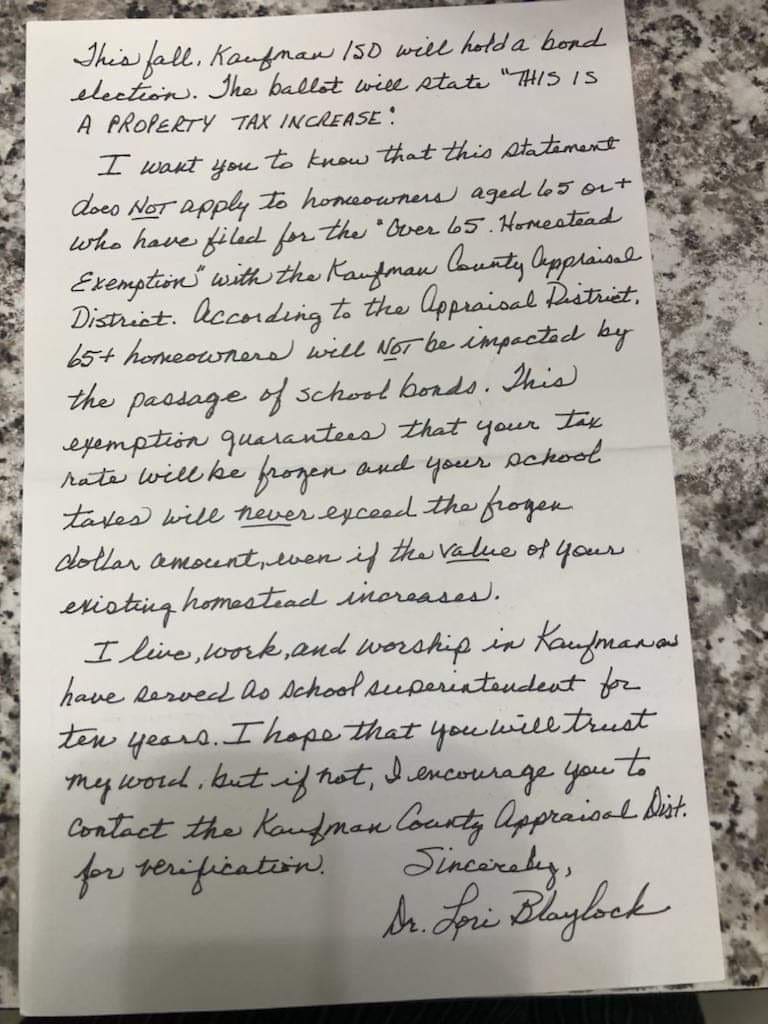 This fall, Kaufman ISD will hold a bond
election. The ballot will state "THIS IS
A PROPERTY TAX INCREASE."
I want you to know that this statement
does NOT apply to homeowners aged 65 or +
who have filed for the "Over 65 Homestead
Exemption" with the Kaufman County Appraisal
District. According to the Appraisal District,
65+ homeowners will NOT be impacted by
the passage of school bonds. This
exemption guarantees that your tax
rate will be frozen and your school
taxes will never exceed the frozen
dollar amount, even if the value of your
existing homestead increases.
I live, work, and worship in Kaufman an
have served as school superintendent for
ten years. I hope that you will trust
my word, but if not, I encourage you to
contact the Kaufman County Appraisal Dist.
for verification. Sincerely,
Dr. Lori Blaylock